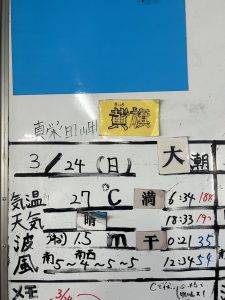 真栄田岬
黄旗
3/24(日) 大潮
気温 27℃ 満 6:34 188
天気 晴 18:33 19
波 1.5m 干 0:21 35
風 南5~4~5~5 12:34 59
南西
メモ 3/24